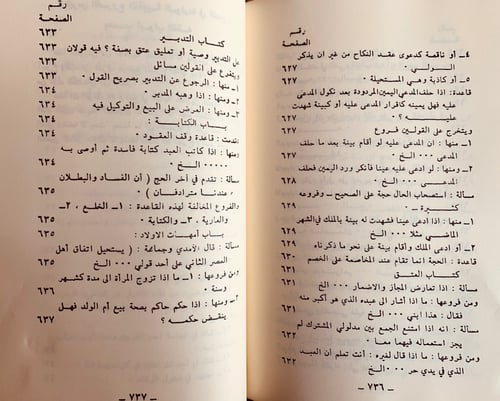 رقم
الصفحة
٤ـ أو ناقصة كدعوى عقد النكاح من غير ان يذكر
الولي ٠ ٦٢٧
٥ـ أو كاذبة وهي المستحيلة ٦٢٧
قاعدة : اذا حلف المدعي اليمين المردودة بعد نكول المدعى
عليه فهل يمينه كاقرار المدعى عليه أو كبينة شهدت
عليه ؟ ٦٢٧
ويتخرج على القولين فروع
١ـ منها : ان المدعى عليه لو أقام بينة بعد ما حلف
المدعى ٠٠٠ الخ ٠ ٦٢٧
٢ـ ومنها : لو ادعى عليه عينا فأنكر ورد اليمين فحلف
المدعى ٠٠٠ الخ ٠ ٦٢٨
مسألة : استصحاب الحال حجة على الصحيح ـ وفروعه
كثيرة ـ ٦٢٨
١ـ منها : اذا ادعى عينا فشهدت له بينة بالملك في الشهر
الماضي مثلا ٠٠٠ الخ ٦٢٩
٢ـ أو ادعى الملك وأقام بينة على نحو ما ذكرناه ٦٢٩
قاعدة : الحجة انما تقام عند المخاصمة على الخصم ٦٣٠
كتاب العتق
مسألة : اذا تعارض المجاز والاضمار ٠٠٠ الخ ٦٣١
ومن فروعها : ما اذا أشار الى عبده الذي هو أكبر منه
فقال : هذا ابني ٠٠٠ الخ ٠ ٦٣١
مسألة : انه اذا امتنع الجمع بين مدلولي المشترك لم
يجز استعماله فيهما معا ٠ ٦٣٢
ومن فروعها : ما اذا قال لغيره : انت تعلم أن العبد
الذي في يدي حر ٠٠٠ الخ ٠ ٦٣٢
ـ ٧٣٦ ـ
رقم
الصفحة
كتاب التدبير ٦٣٣
هل التدبير وصية أو تعليق عتق بصفة ؟ فيه قولان ٦٣٣
ويتفرع على القولين مسائل ٦٣٣
١ـ منها : الرجوع عن التدبير بصريح القول ٠ ٦٣٣
٢ـ ومنها : اذا وهبه المدبر ٠ ٦٣٤
٣ـ ومنها : العرض على البيع والتوكيل فيه ٦٣٤
باب الكتابة :
قاعدة وقف العقود ٠ ٦٣٤
ومنها : اذا كاتب العبد كتابة فاسدة ثم أوصى به
٠٠٠٠٠ الخ ٠ ٦٣٤
مسألة : تقدم في آخر الحج ( أن الفساد والبطلان
عندنا مترادفان ) ٠ ٦٣٥
والفروع المخالفة لهذه القاعدة : ١ـ الخلع ، ٢ـ
والعارية ، ٣ـ والكتابة ٠ ٦٣٥
باب أمهات الاولاد :
مسألة : قال الآمدي وجماعة : ( يستحيل اتفاق أهل
العصر الثاني على أحد قولي ٠٠٠ الخ ٦٣٥
ومن فروعها : ١ـ ما اذا تزوج المرأة الى مدة كشهر
وسنة ٠ ٦٣٦
٢ـ ومنها : اذا حكم حاكم بصحة بيع أم الولد فهل
ينقض حكمه ؟ ٦٣٧
ـ ٧٣٧ ـ